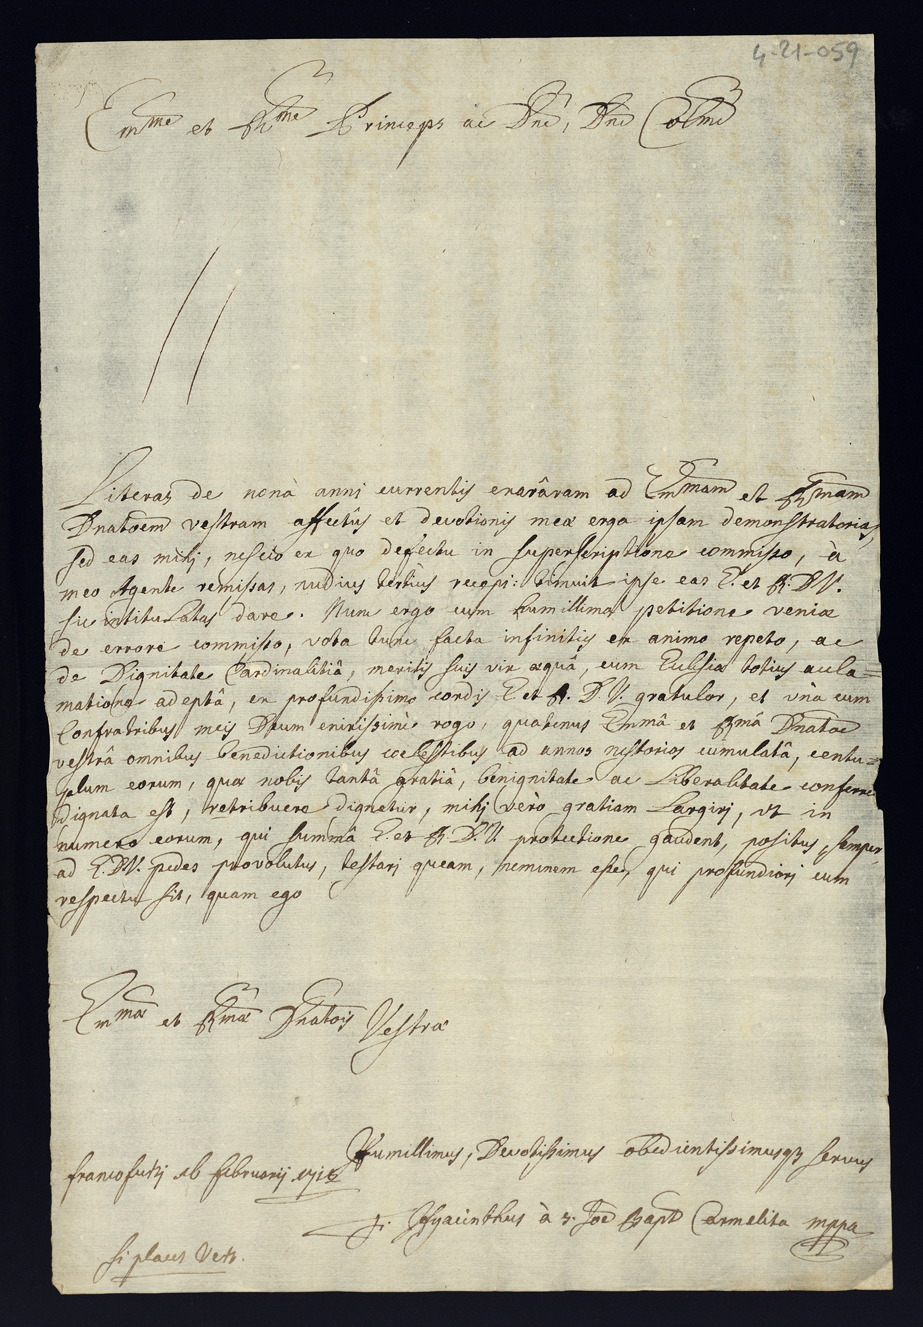 4-21-059
Emme et Rme Princeps ac Dne, Dne Colme
Literas de nonâ anni currentis exarâram ad Emmam et Rmam
Dnatoem vestram affectûs et devotionis meæ erga ipsam demonstratorias,
sed eas mihj, nescio ex quo defectu in superscriptione commisso, à
meo Agente remissas, nudius tertius recepi: timuit ipse eas E. et R. D. V.
sic intitulatas dare. Nunc ergo cum humillima petitione veniæ
de errore commisso, vota tunc facta infinitis ex animo repeto, ac
de Dignitate Cardinalitiâ, meritis suis vix æquâ, cum Eclesiæ totius acla=
matione adeptâ, ex profundissimo cordis E et R. D. V. gratulor, et vnà cum
Confratribus meis Deum enixissime rogo, quatenus Emmâ et Rmâ Dnatoe
vestrâ omnibus benedictionibus coelestibus ad annos nestorios cumulatâ, centu=
plum eorum, quæ nobis tantâ gratiâ, benignitate ac Liberalitate conferre
dignata est, retribuere dignetur, mihj verò gratiam largirj, vt in
numero eorum, qui summâ E. et R. D. V. protectione gaudent, positus, semper
ad E. D. V. pedes provolutus, testarj queam, neminem esse, qui profundiorj cum
respectu sit, quam ego
Emmæ et Rmæ Dnatois Vestræ
Humillimus, Devotissimus obedientissimusq3 servus
francofurti Februarij
F. Hyacinthus à S. Joe Bapt Carmelita mppa
si placet Vert.